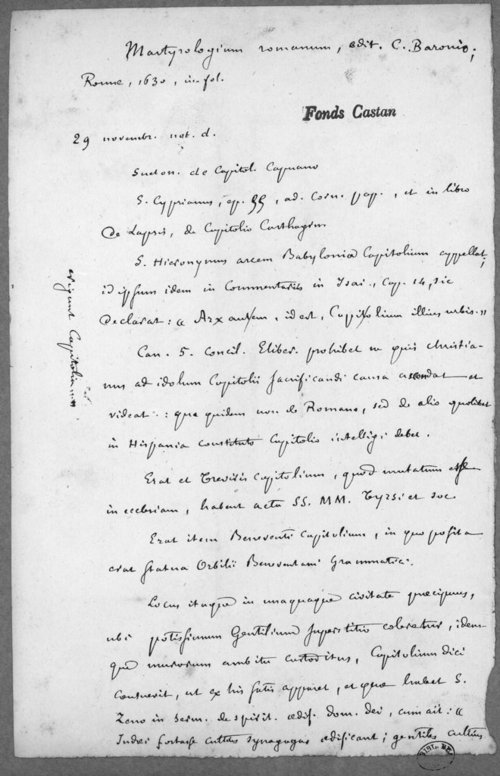 Martyrologium romanum, edit. C. Baronio;
Rome, 1630, in-fol.
Fonds Castan
29 novembr. not. d.
Sueton. de Capitol. Capuano
S. Cyprianus, ep. 55, ad. Corn. pap., et in libro
De Lapsis, de Capitolio Carthagin
S. Hieronymus arcem Babylonia Capitolium appellat,
id ipsum idem in Commentariis in Isai., Cap. 14, sic
Declarat : « Arx autem, id est, Capitolium illius urbis. »
Can. 5. Concil. Eliber. prohibet ne quis christia-
nus ad idolum Capitolii sacrificandi causa ascendat et
videat : quæ quidem non de Romano, sed de alio quolibet
in Hispania constituto Capitolio intelligi debet.
Erat et Treviris Capitolium, quod mutatum esse
in ecclesiam, habent acta SS. MM. Tyrsi et soc
Erat item Beneventi Capitolium, in quo posita
erat statua Orbilii Beneventani Grammatici.
Locus itaque in unaquaque civitate præcipuus,
ubi potissimum Gentilium superstitio coleretur, idem
que murorum ambitu custoditus, Capitolium dici
consuevit, ut ex his satis apparet, et quæ habet S.
Zeno in serm. de spirit. ædif. dom. dei, cum ait : «
Judæi fortasse cultus synagogas ædificant ; gentiles cultius
erigunt Capitolia »